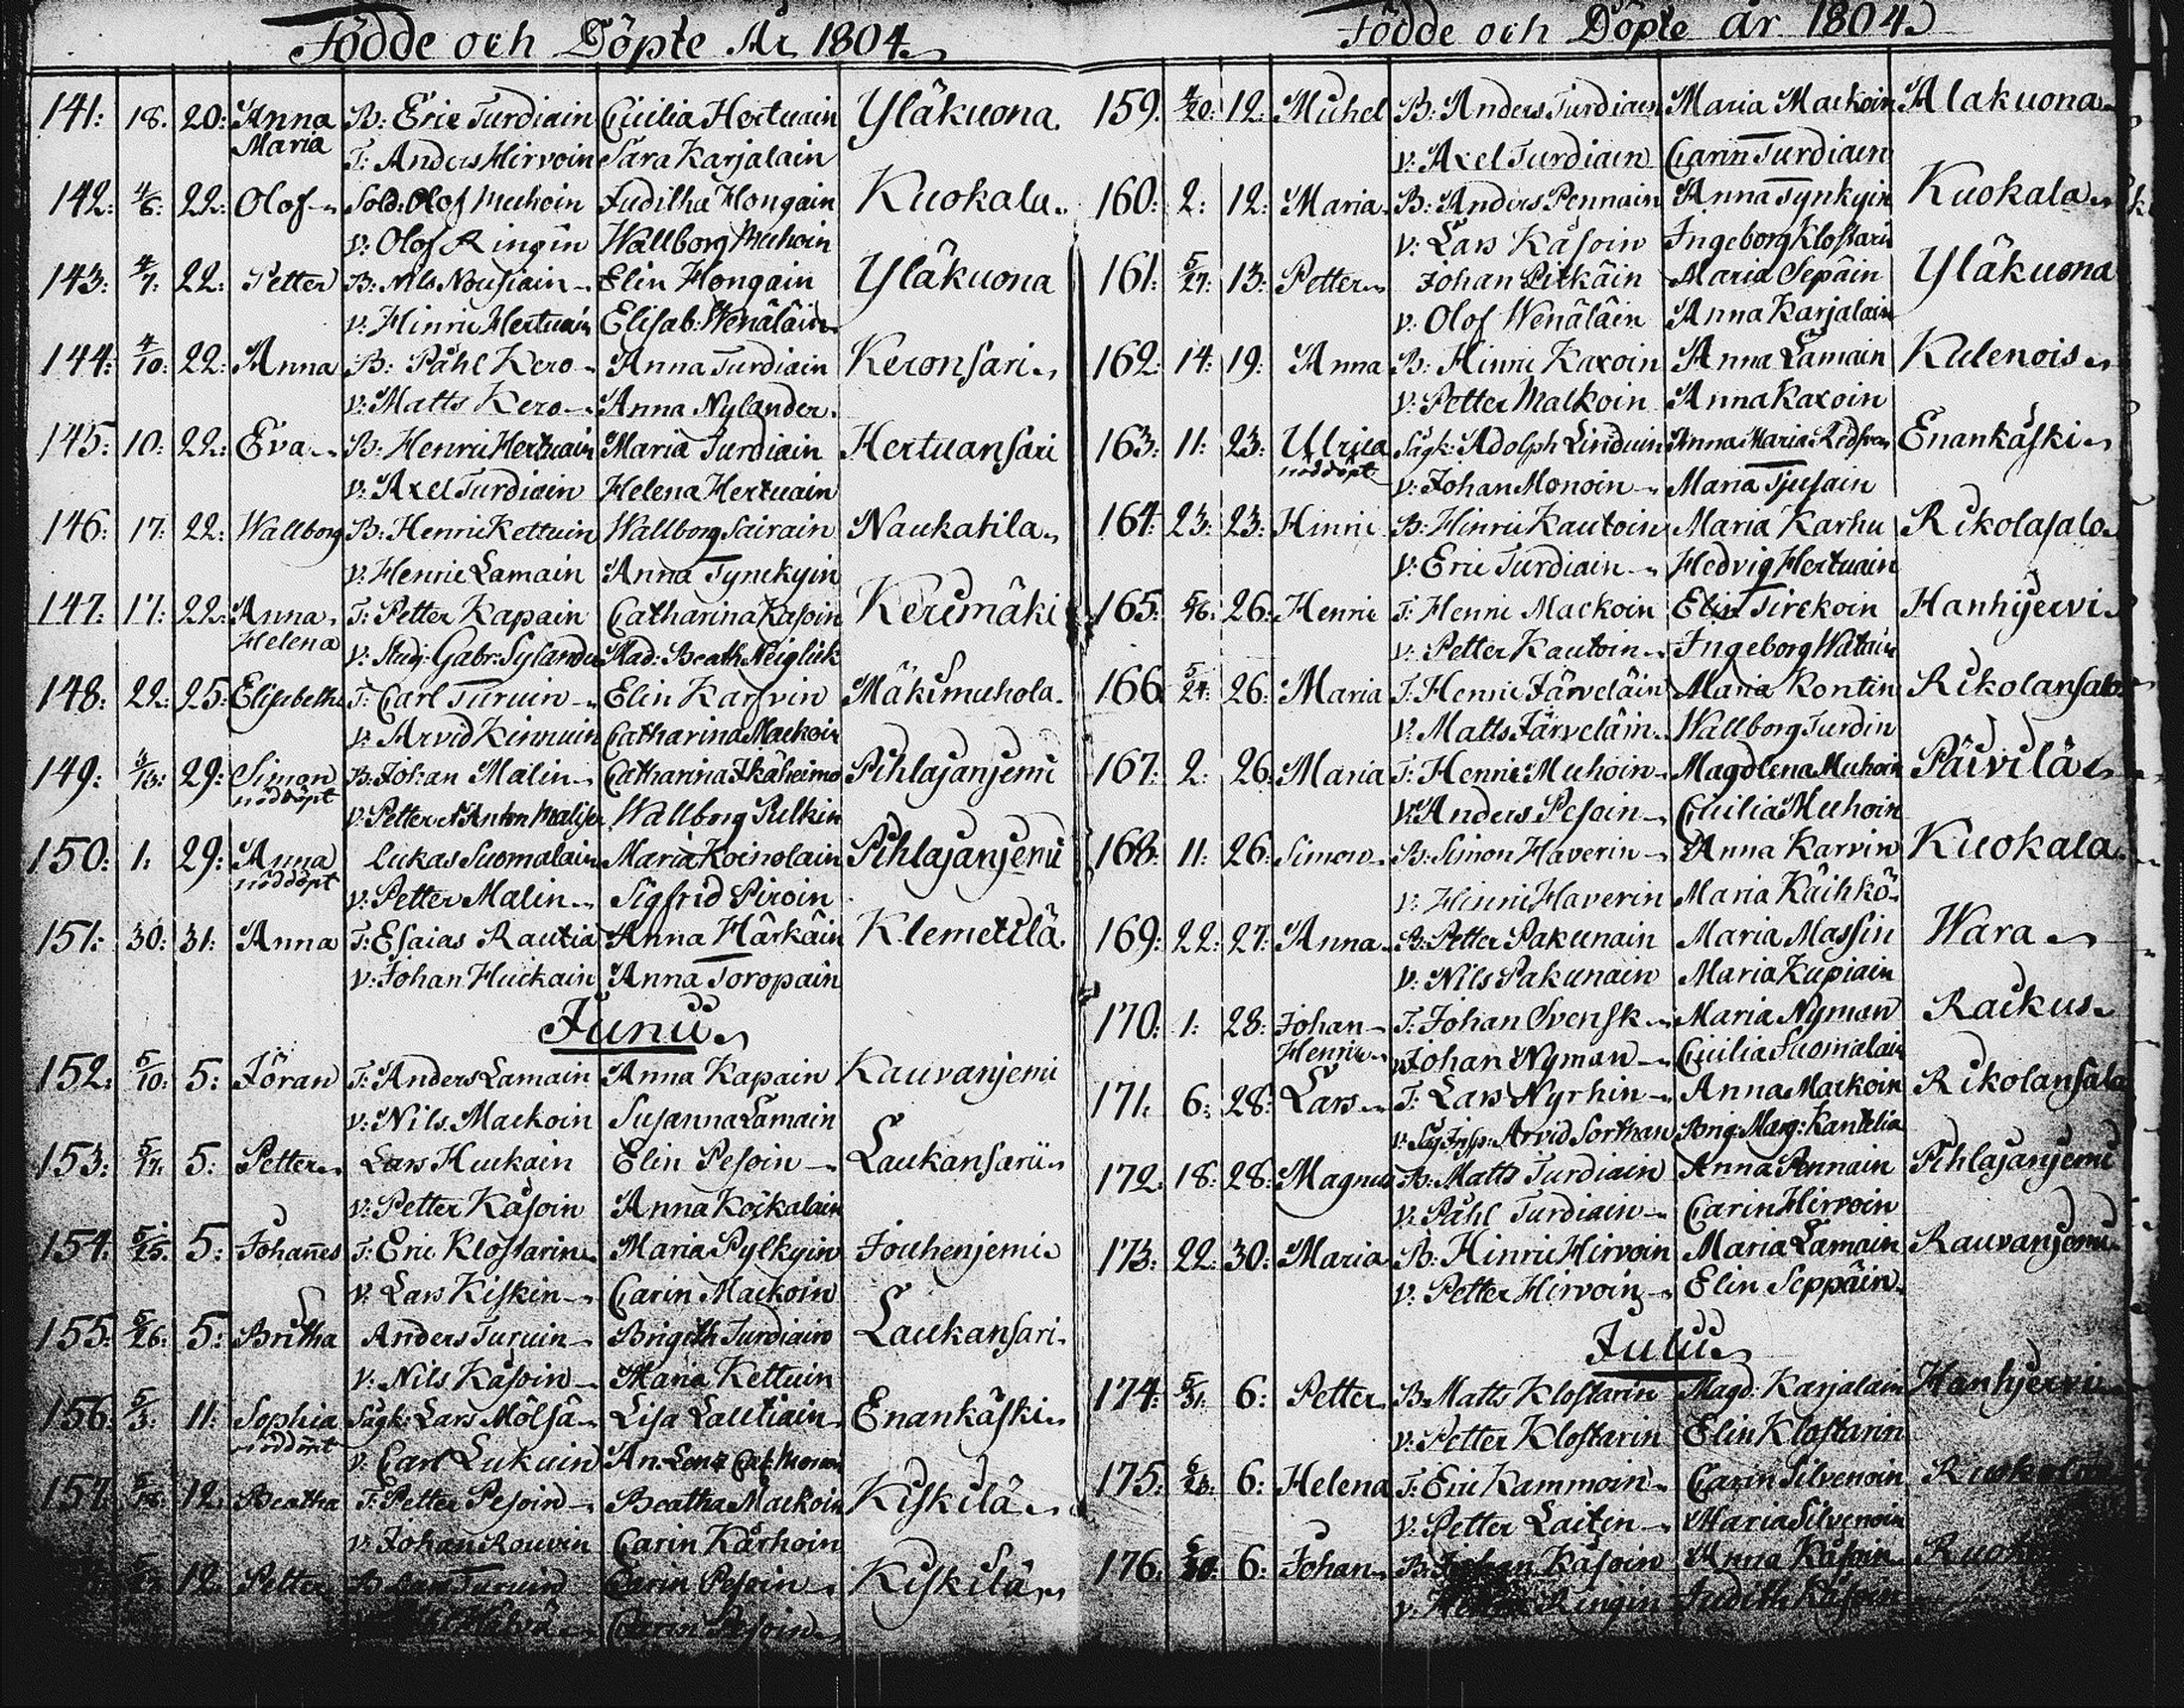 Födde och Döpte År 1804.
141: 18. 20: Anna B: Eric Turdiain Cicilia Hertuain Yläkuona.
Maria T: Anders Hirvoin Sara Karjalain
142: 4/6: 22: Olof Sold: Olof Muhoin Juditha Hongain Kuokala.
v: Olof Ringin Wallborg Muhoin
143: 4/7: 22: Petter B: Nils Nousiain Elin Hongain Yläkuona
v: Hinric Hertuain Elisab: Wenäläin
144: 4/10: 22: Anna B: Påhl Kero Anna Turdiain Keronsari
v: Matts Kero Anna Nylander.
145: 10: 22: Eva B: Henric Hertuain Maria Turdiain Hertuansari
v: Axel Turdiain Helena Hertuain
146: 17: 22: Wallborg B: Henric Kettuin Wallborg Sairain Naukatila.
v: Henric Lamain Anna Tynckyin
147: 17: 22: Anna T: Petter Kapain Catharina Kasoin Kerimäki
Helena v: Stud: Gabr: Sylander Mad: Beath Neiglick
148: 22: 25: Elisabetha T: Carl Turuin Elin Karsvin Mäkimuhola.
v: Arvid Kinnuin Catharina Mackoin
149: 3/13: 29: Simon B: Johan Malin Catharina Ikäheimo Pihlajanjemi
nöddöpt v: Petter Wallborg Pulkin
150: 1: 29: Anna Lukas Suomalain Maria Koinolain Pihlajanjemi
nöddöpt v: Petter Malin Sigfrid Piroin
151: 30: 31: Anna T: Esaias Rautia Anna Härkäin Klemetilä.
v: Johan Huckain Anna Toropain
Junii
152: 5/10: 5: Jöran T: Anders Lamain Anna Kapain Kauvanjemi
v: Nils Mackoin Susanna Lamain
153: 5/17: 5: Petter Lars Huckain Elin Pesoin Laukansarii
v: Petter Käsoin Anna Kockalain
154: 5/25: 5: Johannes T: Eric Klostarin Maria Pylkyin Jouhenjemi
v: Lars Kiskin Carin Mackoin
155: 5/26: 5: Britha Anders Turuin Brigith Turdiain Laukansari.
v: Nils Käsoin Maria Kettuin
156: 5/3: 11: Sophia Sågk: Lars Mölsä Lisa Lautiain Enankäski
nöddöpt v: Carl Lukuin An: Lena
157: 5/18: 12: Beatha T: Petter Pesoin Beatha Mackoin Kiskilä
v: Johan Rouvin Carin Kärhoin
12: Petter B: Lars Turuin Carin Pesoin Kiskilä
Carin Pesoin
Födde och Döpte år 1804
159. 4/20: 12: Michel B: Anders Turdiain Maria Mackoin Alakuona
v: Axel Turdiain Carin Turdiain
160: 2: 12: Maria B: Anders Pennain Anna Tynkyin Kuokala
v: Lars Käsoin Ingeborg Klostari
161: 5/27: 13: Petter Johan Pitkäin Maria Sepäin Yläkuona
v: Olof Wenäläin Anna Karjalain
162: 14: 19: Anna B: Hinric Kaxoin Anna Lamain Kulenois
v: Petter Malkoin Anna Kaxoin
163: 11: 23: Ulrica Sågk: Adolph Linduin Anna Maria Enankäski
nöddöpt v: Johan Monoin Maria Tjusain
164: 23: 23: Hinric B: Hinric Kautoin Maria Karhu Rikolasalo
v: Eric Turdiain Hedvig Hertuain
165: 5/16: 26: Henric T: Henric Mackoin Elin Tirckoin Hanhijervi
v: Petter Kautoin Ingeborg Watain
166: 5/24: 26: Maria T: Henric Järveläin Maria Kontin Rikolansalo
v: Matts Järveläin Wallborg Turdin
167: 2: 26: Maria T: Henric Muhoin Magdlena Muhoin Päivilä
v: Anders Pesoin Cicilia Muhoin
168: 11: 26: Simon B: Simon Haverin Anna Karvin Kuokala
v: Hinric Haverin Maria Käihkö
169: 22: 27: Anna B: Petter Pakunain Maria Massin Wara
v: Nils Pakunain Maria Kupiain
170: 1: 28: Johan T: Johan Svensk Maria Nyman Rackus
Henric v: Johan Nyman Cicilia Suomalain
171. 6: 28: Lars T: Lars Nyrhin Anna Mackoin Rikolansalo
v: Såg Insp: Arvid Sorthan Marg: Kantelia
172: 18: 28: Magnus B: Matts Turdiain Anna Pennain Pihlajanjemi
v: Påhl Turdiain Carin Hirvoin
173: 22: 30: Maria B: Hinric Hirvoin Maria Lamain Rauvanjemi
v: Petter Hirvoin Elin Seppäin
Julii
174: 5/31: 6: Petter B: Matts Klostarin Magd: Karjalain Hanhjervi
v: Petter Klostarin Elin Klostarin
175: 6: Helena T: Eric Kammoin Carin Silvenoin
v: Petter Laitin Maria Silvenoin
176: 6: Johan B: Johan Käsoin Anna Käsoin
v: Ringin Judith Käsoin